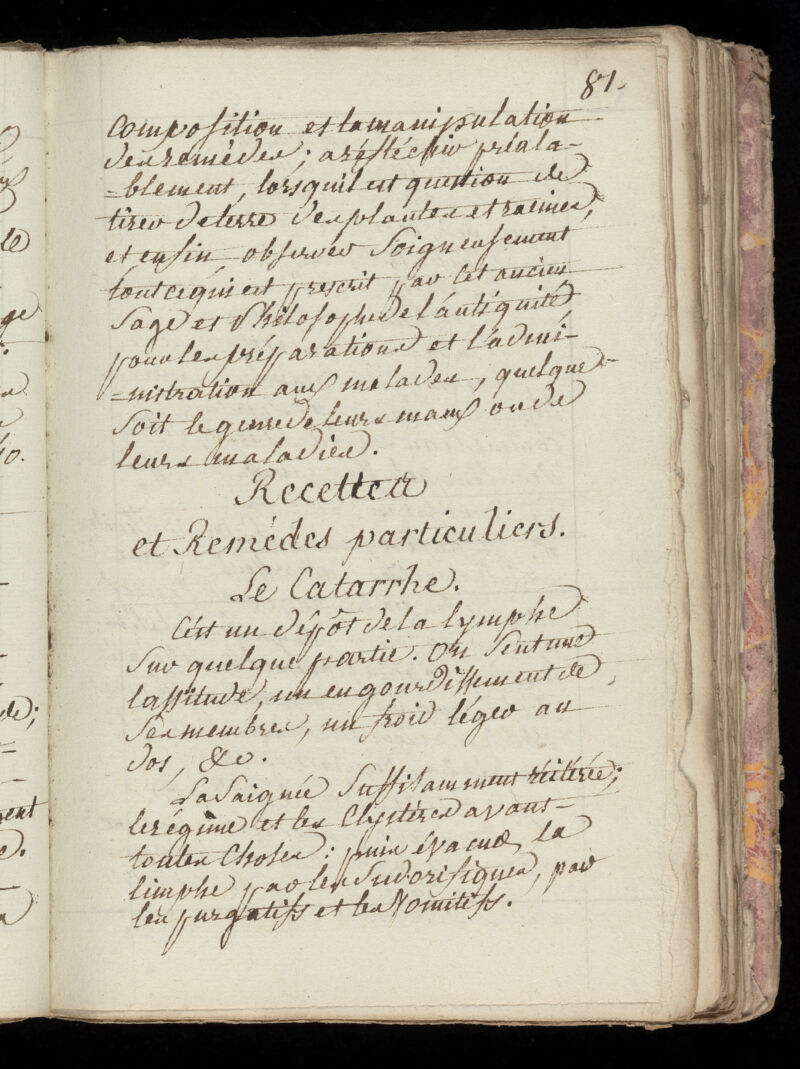 81.
composition et la manipulation
des remèdes; a réfléchir préala-
=blement, lorsquil est question de
tirer de terre des plantes et racines,
et enfin observer soigneusement
tout ce qui est prescrit par cet ancien
sage et Philosophe de l'antiquité
pour les préparations et l'admi-
=nistration aux malades, quelque
soit le genre de leurs maux ou de
leurs maladies.
Recettes
et Remédes particuliers.
Le Catarrhe.
C'est un dépôt de la lymphe
sur quelque partie. On sent une
lassitude, un engourdissement de
ses membres, un froid léger au
dos, &c.
La saignée suffisamment réitérée;
le régime et les clystères avant
toutes choses: puis évacuez la
limphe par les sudorifiques, par
les purgatifs et les vomitifs.